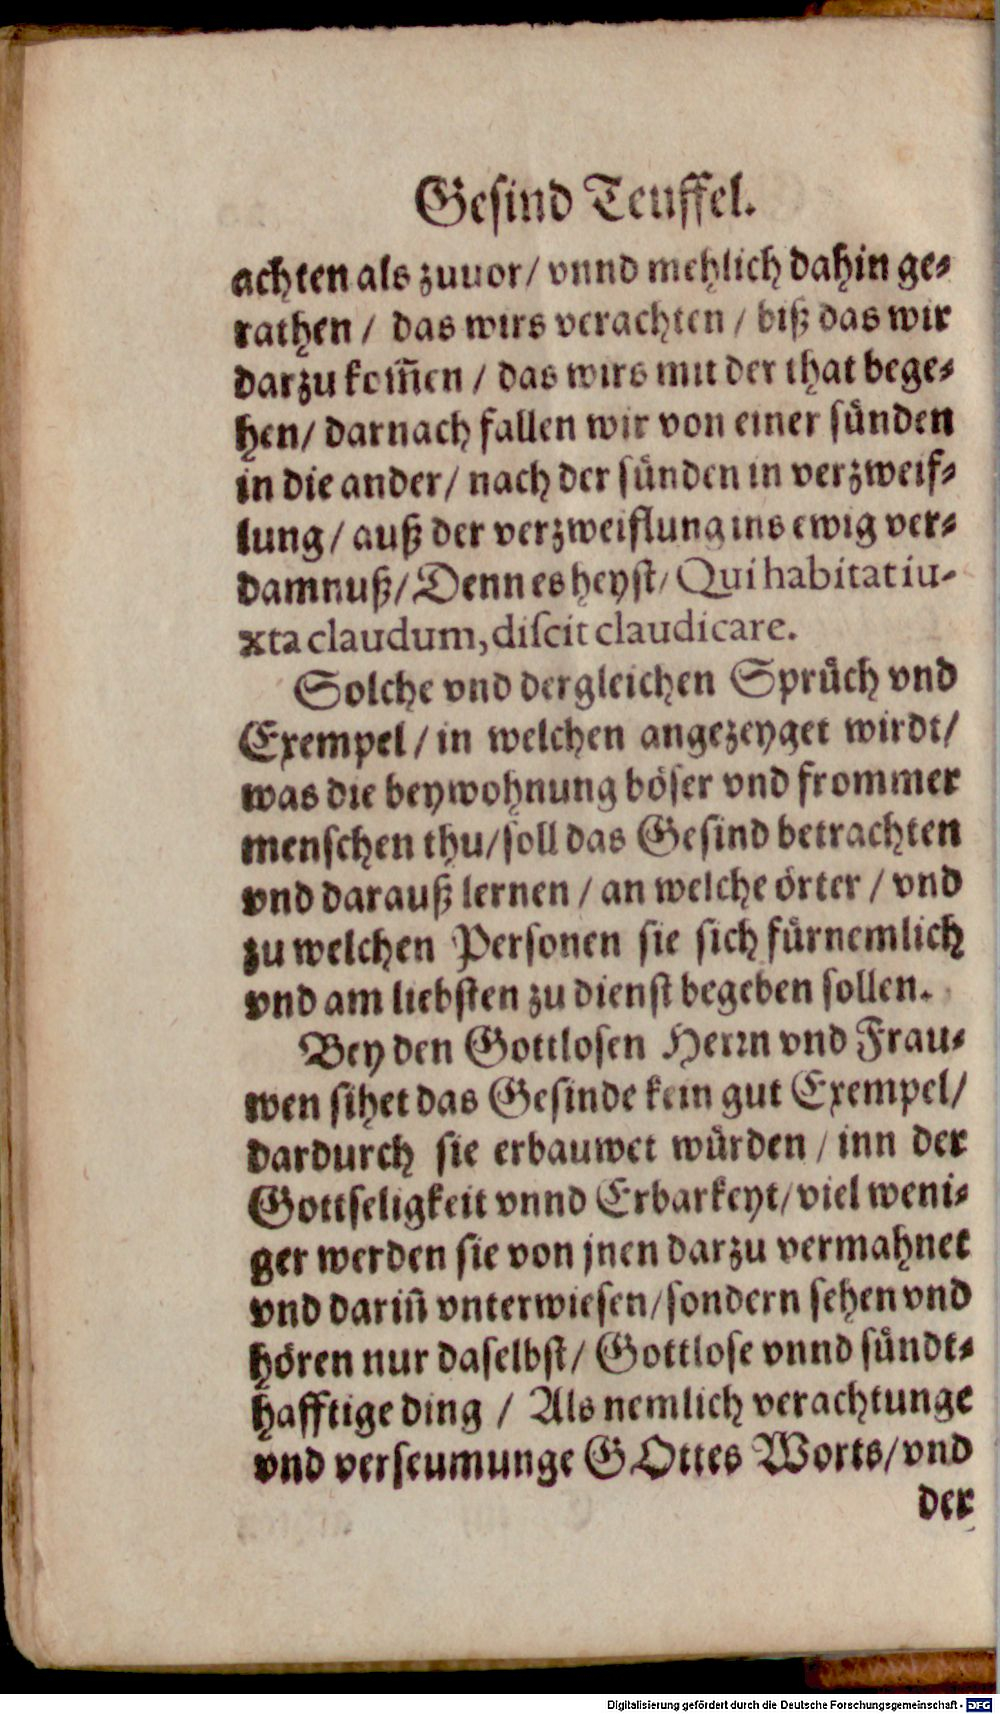 Gesind Teuffel.
achten als zuuor/ vnnd mehlich dahin ge⸗
rathen/ das wirs verachten/ biß das wir
darzu kom̃en/ das wirs mit der that bege⸗
hen/ darnach fallen wir von einer sünden
in die ander/ nach der sünden in verzweif⸗
lung/ auß der verzweiflung ins ewig ver⸗
damnuß/ Denn es heyst/ Qui habitat iu-
xta claudum, discit claudicare.
Solche vnd dergleichen Sprüch vnd
Exempel/ in welchen angezeyget wirdt/
was die beywohnung böser vnd frommer
menschen thu/ soll das Gesind betrachten
vnd darauß lernen/ an welche örter/ vnd
zu welchen Personen sie sich fürnemlich
vnd am liebsten zu dienst begeben sollen.
Bey den Gottlosen Herrn vnd Frau⸗
wen sihet das Gesinde kein gut Exempel/
dardurch sie erbauwet würden/ inn der
Gottseligkeit vnnd Erbarkeyt/ viel weni⸗
ger werden sie von jnen darzu vermahnet
vnd dariñ vnterwiesen/ sondern sehen vnd
hören nur daselbst/ Gottlose vnnd sündt⸗
hafftige ding/ Als nemlich verachtunge
vnd verseumunge GOttes Worts/ vnd
der
Digitalisierung gefördert durch die Deutsche Forschungsgemeinschaft - DFG